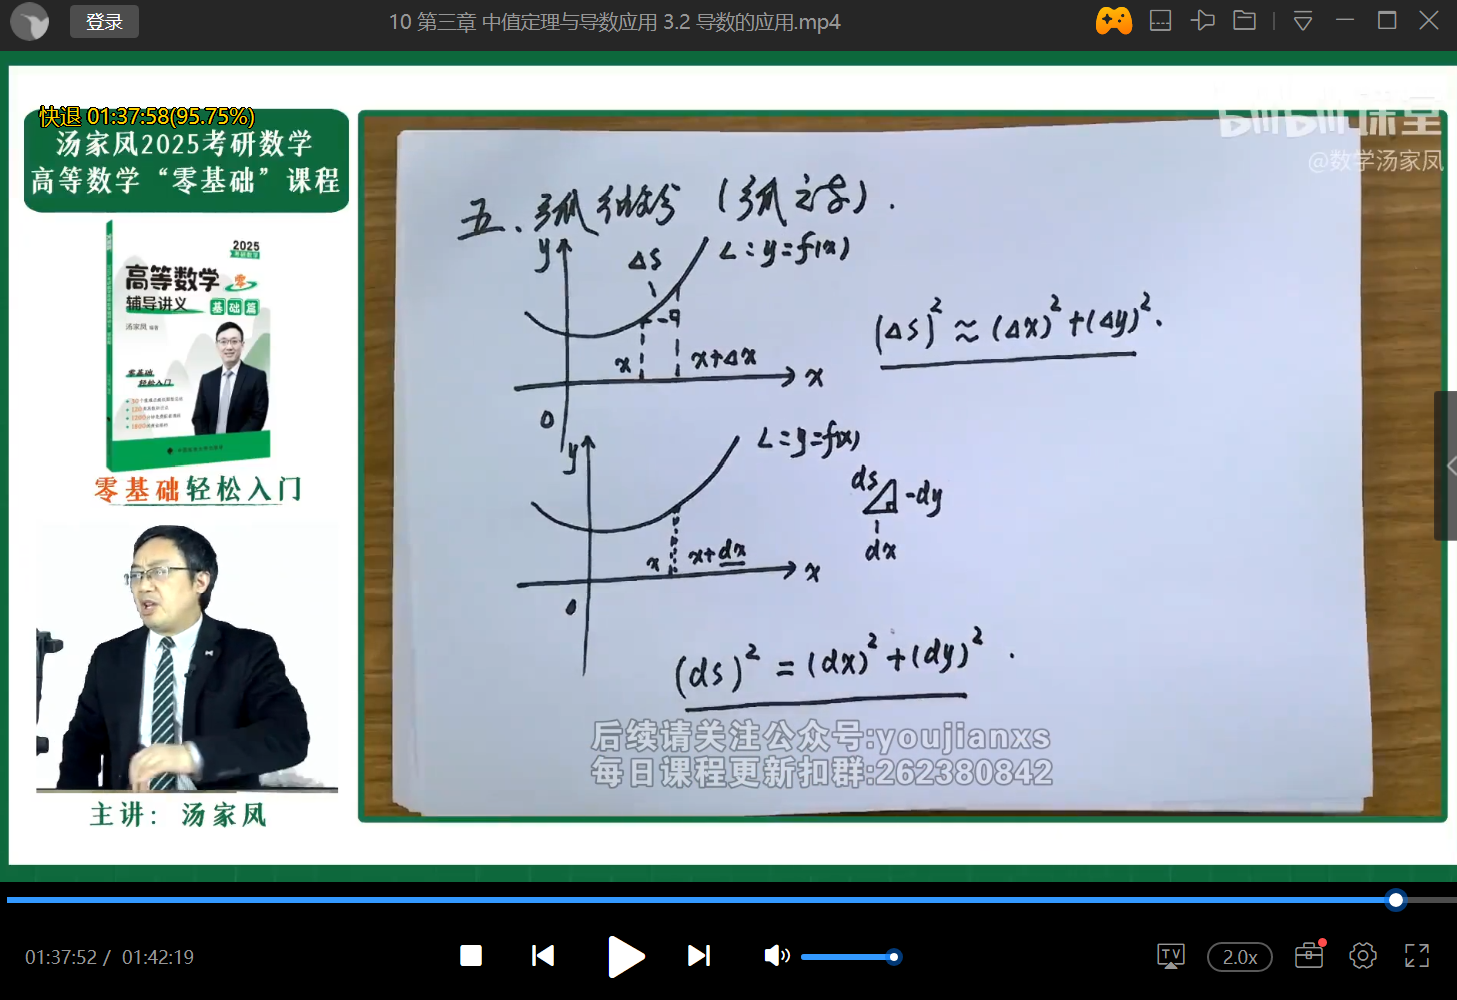 登录
10 第三章 中值定理与导数应用 3.2 导数的应用.mp4
快退 01:37:58(95.75%)
汤家凤2025考研数学
高等数学“零基础”课程
2025
高等数学 零
辅导讲义 基础篇
汤家凤 编著
零基础
轻松入门
零基础轻松入门
主讲：汤家凤
bilibili课堂
@数学汤家凤
五、弧微分（弧之学）.
y
Δs
L: y=f(x)
x
x+Δx
x
0
(Δs)² ≈ (Δx)²+(Δy)².
y
L: y=f(x)
x
x+dx
x
0
ds
dy
dx
(ds)² = (dx)²+(dy)².
后续请关注公众号:youjianxs
每日课程更新扣群:262380842
01:37:52 / 01:42:19
TV
2.0x